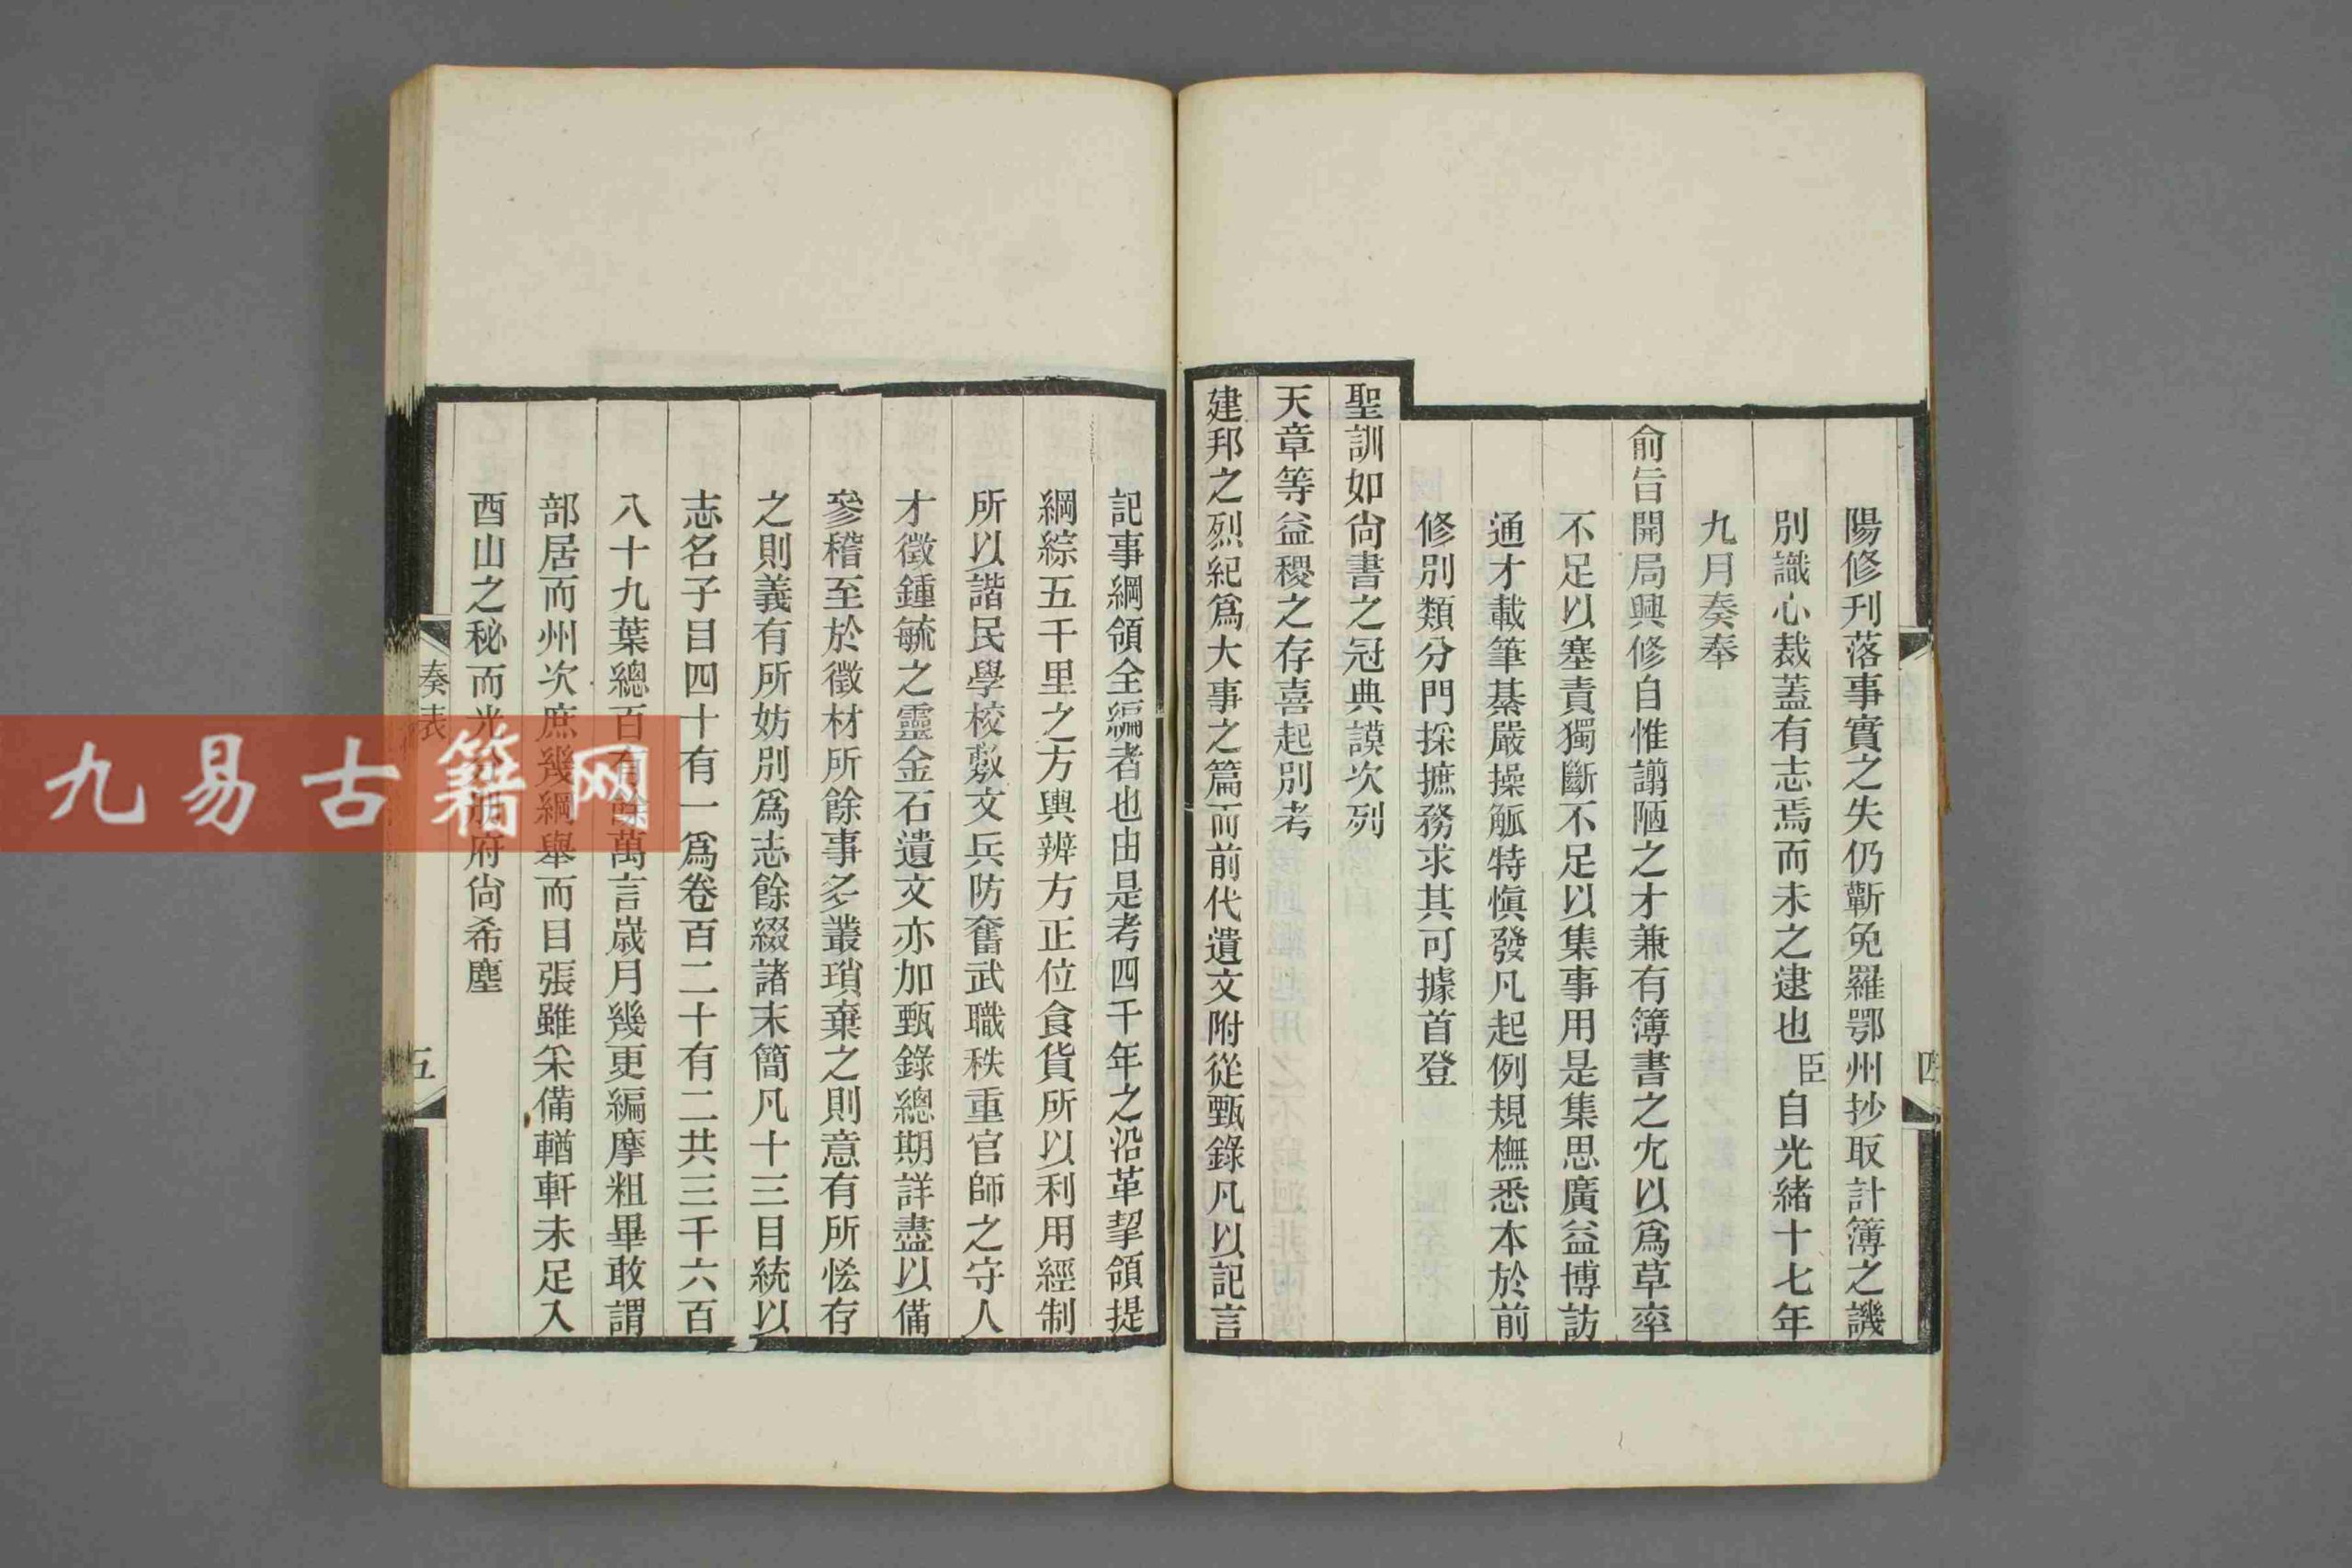 陽修刋落事實之失仍蘄免羅鄂州抄取計簿之譏
別識心裁蓋有志焉而未之逮也臣自光緒十七年
九月奏奉
俞旨開局興修自惟謭陋之才兼有簿書之宂以爲草率
不足以塞責獨斷不足以集事用是集思廣益博訪
通才載筆綦嚴操觚特愼發凡起例規橅悉本於前
修別類分門採摭務求其可據首登
聖訓如尙書之冠典謨次列
天章等益稷之存喜起別考
建邦之烈紀爲大事之篇而前代遺文附從甄錄凡以記言
四
記事綱領全編者也由是考四千年之沿革挈領提
綱綜五千里之方輿辨方正位食貨所以利用經制
所以諧民學校敷文兵防奮武職秩重官師之守人
才徵鍾毓之靈金石遺文亦加甄錄總期詳盡以備
參稽至於徵材所餘事多叢瑣棄之則意有所恡存
之則義有所妨別爲志餘綴諸末簡凡十三目統以
志名子目四十有一爲卷百二十有二共三千六百
八十九葉總百有餘萬言歲月幾更編摩粗畢敢謂
部居而州次庶幾綱舉而目張雖采備輶軒未足入
酉山之秘而光府尙希塵
奏表
五
九易古籍网